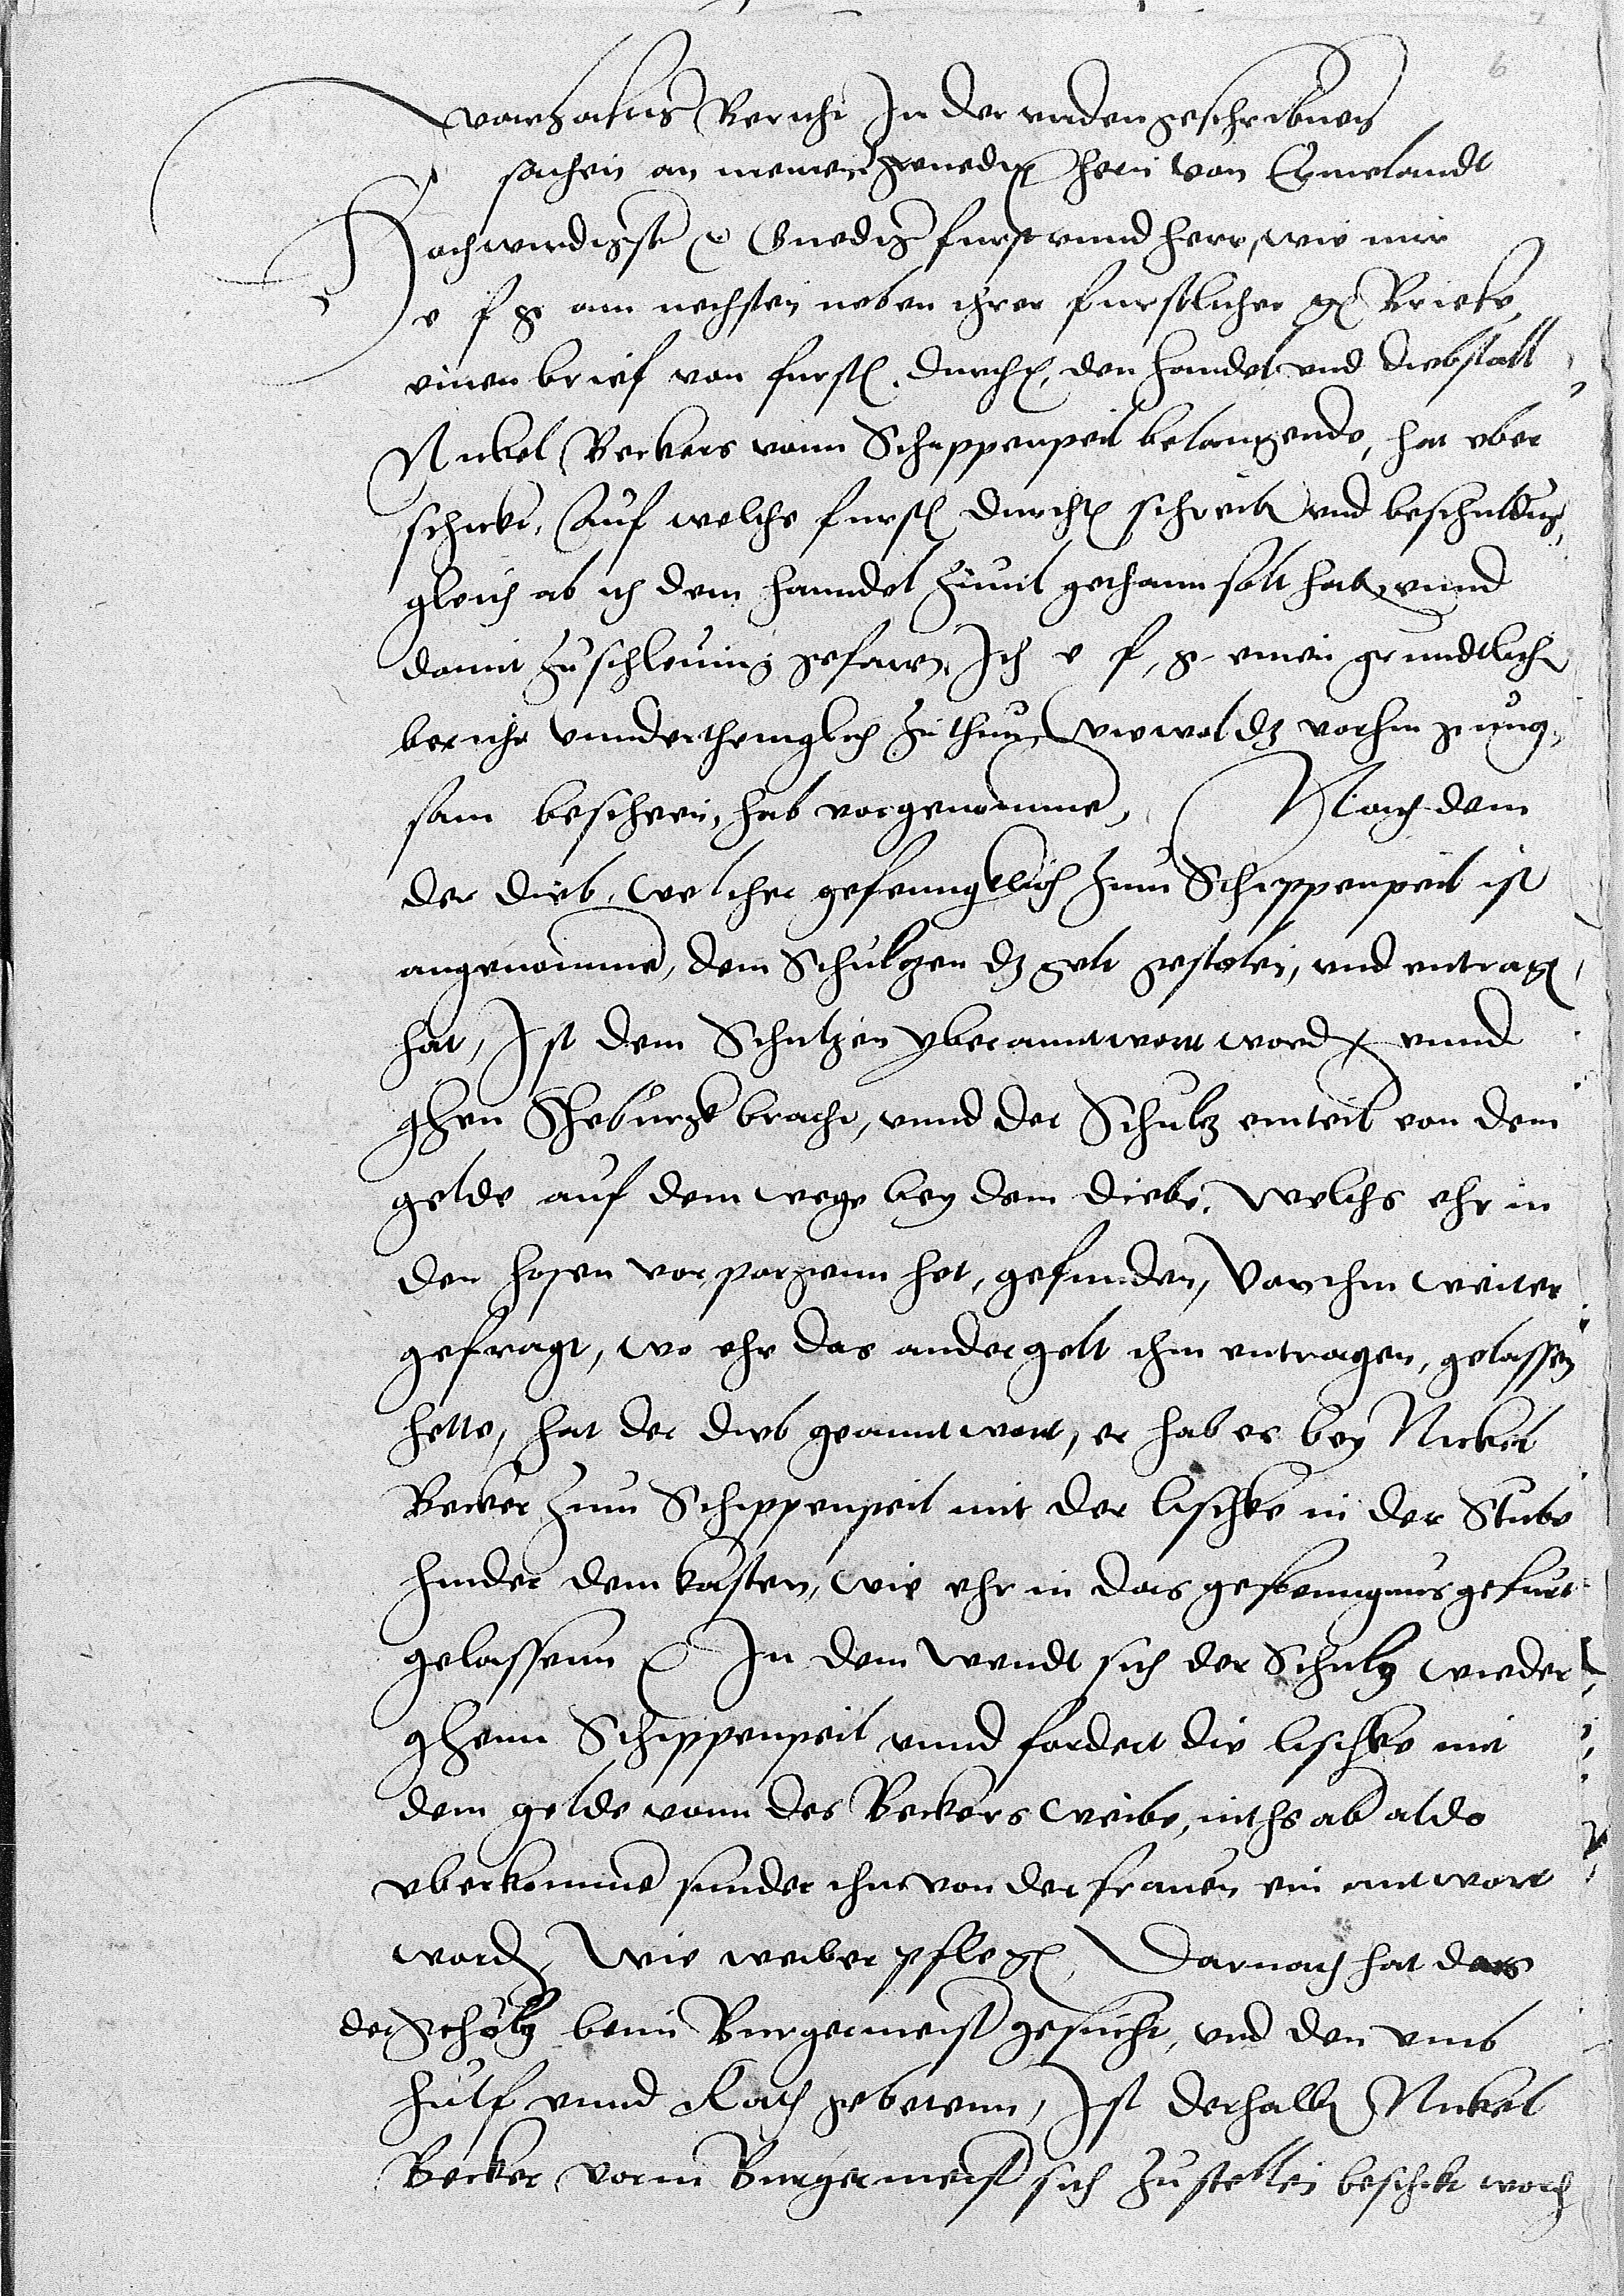 6
warhaftig Bericht In der undengeschribnen
sachen an meinen gnedig herrn von Ermelandt
Hochwirdigster Gnediger furst unnd herr, wie mir
e f g am nechsten neben ihrer furstlicher g Briefe
einen brief von furstl. durchl. den handel und diebstall
Nickel Beckers vonn Schippenpeil belangende, hat uber
schickt, Auf welchs furstl durchl schreiben und beschuldig
gleich ab ich dem hanndel zuvil gethann solt haben, unnd
damit zu schleunig gefaren. Ich e f, g einen grundtlichen
bericht unnderthenglich zuthun, wiewol dz vorhin gnug
sam bescheen, hab vorgenomme, Nach dem
der dieb, welcher gefenngklich zum Schippenpeil ist
angenomme, dem Schultzen dz gelt gestolen, und entrag
hat, Ist dem Schultzen uberanntwort word, unnd
ghen Seburgk bracht, unnd der Schultz einteil von dem
gelde auf dem wege bey dem diebe, welchs ehr in
den hosen vorporgenn het, gefunden, Von ihm weiter
gefragt, wo ehr das ander gelt ihm entragen, gelassen
hette, hat der dieb geanntwort, er hab es bey Nickel
Becker zum Schippenpeil mit der lischke in der Stube
hinder dem kasten, wie ehr in das gefenngnus gefurt
gelassenn In dem wendt sich der Schultz wieder
ghenn Schippenpeil unnd fordert die lischke mit
dem gelde vonn des Beckers weibe, nichs ab aldo
uberkomme sunder ihm von der frauen ein antwort
word, Wie weiber pfleg, Darnach hat
der Schultz beim Burgermeist gesucht, und den umb
hulf unnd Rath gebetenn, Ist derhalb Nickel
Becker vorm Burgermeist sich zustellen beschickt word